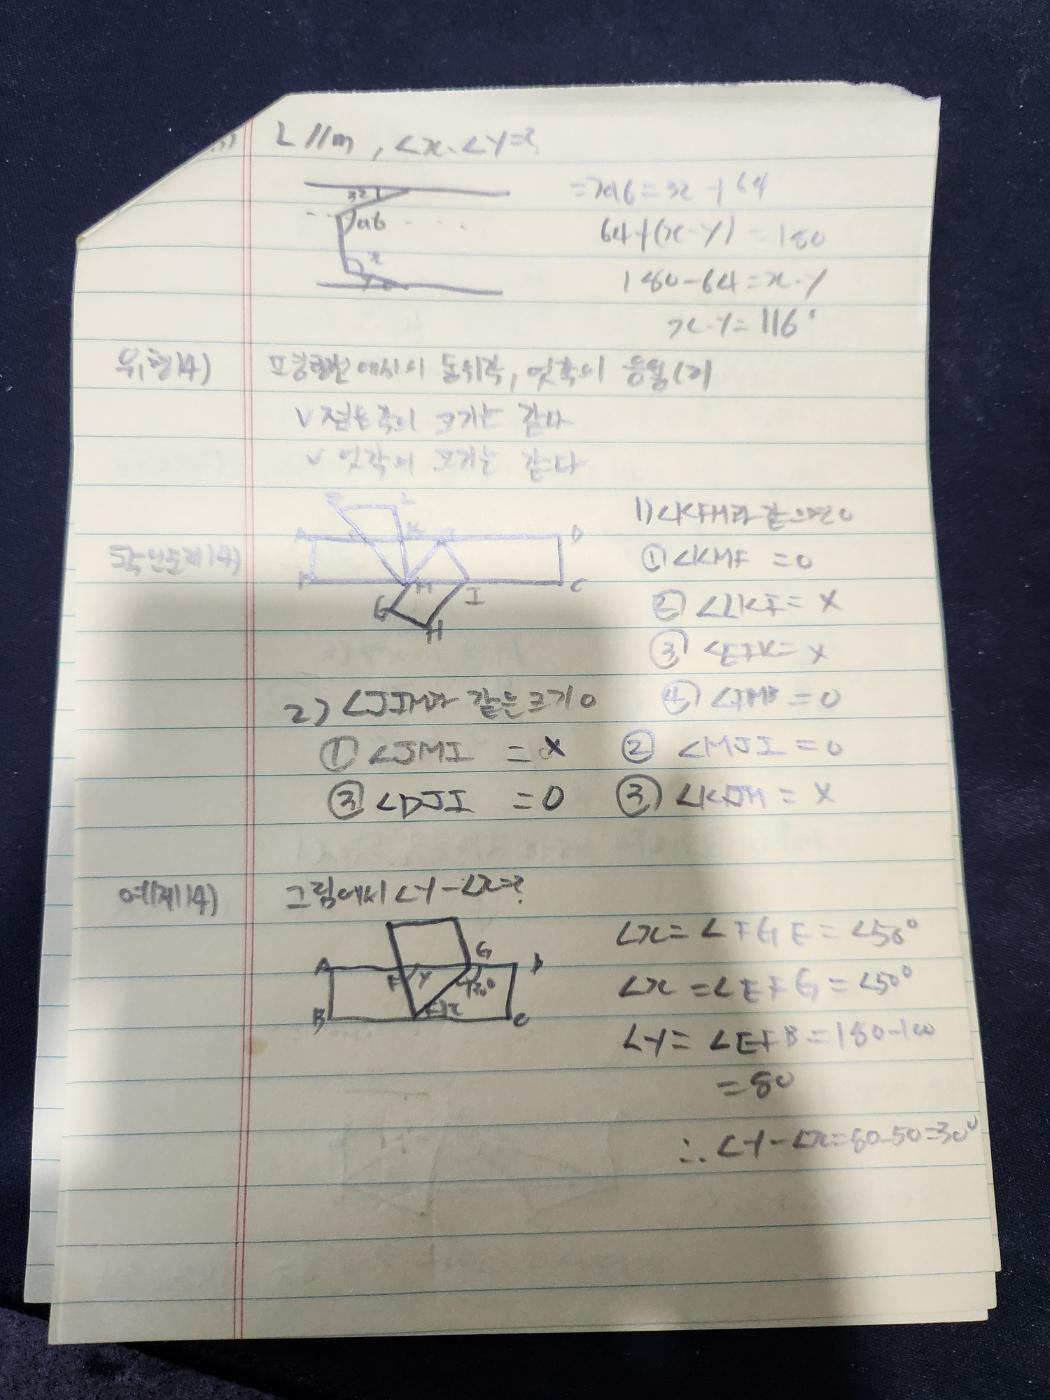 L//m, ∠x-∠y=?
32
96
x
y
=>96=32+64
64+(x-y)=180
180-64=x-y
x-y=116°
유형14) 에서의 동위각, 엇각의 응용(2)
√ 접은 각의 크기는 같다
√ 엇각의 크기는 같다
A K J D
M I C
G
H
1) 같으면 0
① ∠KMF = 0
② ∠LKF = X
③ ∠EFK = X
④ ∠FMB = 0
2) ∠JIM과 같은 크기 0
① ∠JMI = X ② ∠MJI = 0
③ ∠DJI = 0 ③ ∠KJM = X
예제14) 그림에서 ∠y-∠x=?
A F y G D
B E x C
∠x = ∠FGE = ∠50°
∠x = ∠EFG = ∠50°
∠y = ∠EFB = 180-100
= 80
∴ ∠y-∠x=80-50=30°